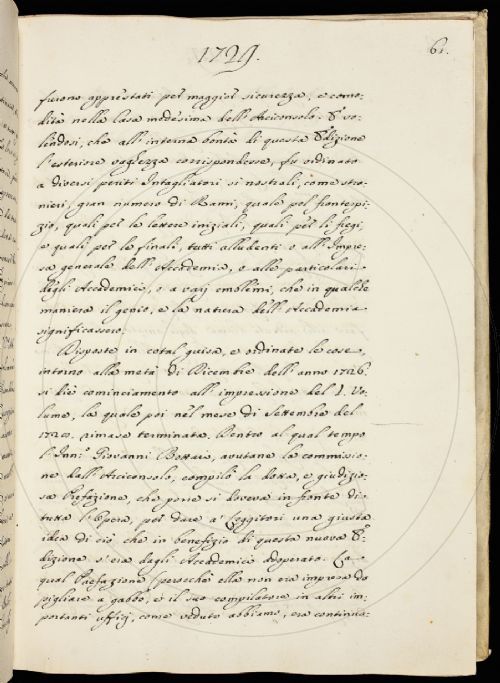 1729.
61.
furono apprestati per maggior sicurezza, e como-
dità nella Casa medesima dell'Arciconsolo. E vo-
lendosi, che all'interna bontà di questa Edizione
l'esteriore vaghezza corrispondesse, fu ordinato
a diversi periti Intagliatori sì nostrali, come stra-
nieri, gran numero di Rami, quale pel frontespi-
zio, quali per le lettere iniziali, quali per li fregi,
e quali per le finali, tutti alludenti o all'Impre-
sa generale dell'Accademia, o alle particolari
degli Accademici, o a varj emblemi, che in qualche
maniera il genio, e la natura dell'Accademia
significassero.
Disposte in cotal guisa, e ordinate le cose,
intorno alla metà di Dicembre dell'anno 1726.
si diè cominciamento all'impressione del I. Vo-
lume, la quale poi nel mese di Settembre del
rimase terminata. Dentro al qual tempo
l'Inn: Giovanni Bottari, avutane la commissio-
ne dall'Arciconsolo, compilò la dotta, e giudizio-
sa Prefazione, che porre si doveva in fronte di
tutta l'Opera, per dare a' Leggitori una giusta
idea di ciò che in benefizio di questa nuova E-
dizione s'era dagli Accademici adoperato. La
qual Prefazione (perocchè ella non era impresa da
pigliare a gabbo, e il suo compilatore in altri im-
portanti uffizj, come veduto abbiamo, era continua-